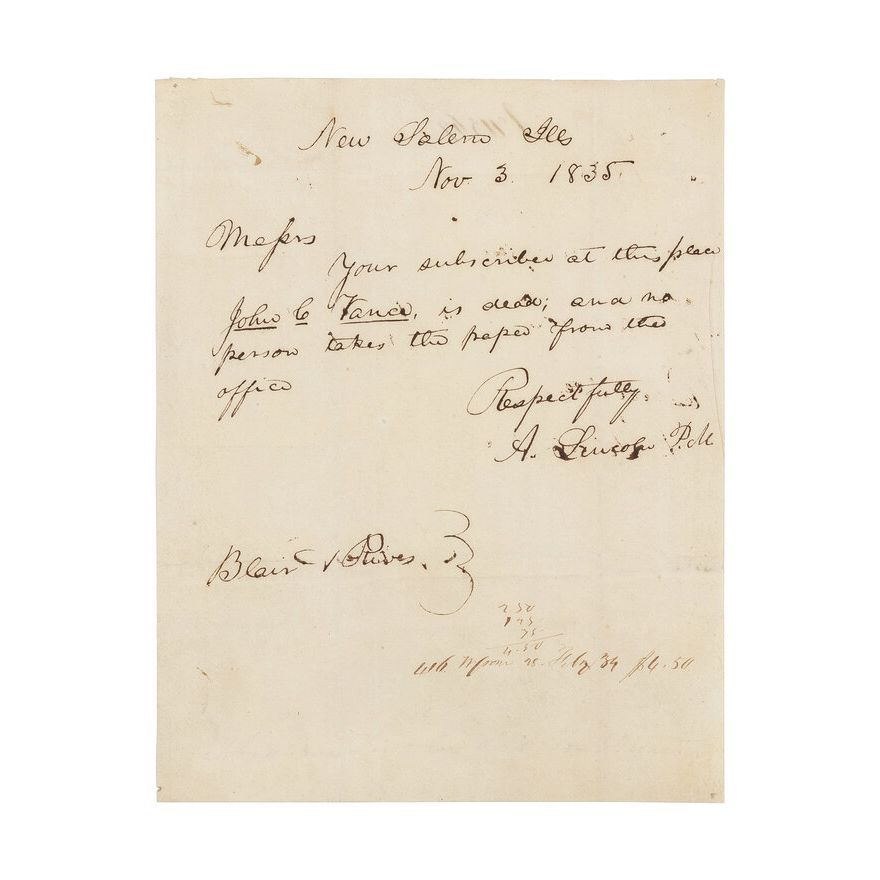 New Salem Ills
Nov. 3. 1835.
Messrs
Your subscriber at this place
John C Vance, is dead; and no
person takes the paper from the
office
Respectfully
A. Lincoln P.M
Blair & Rives.
2 50
1 25
75
4.50
from 28. Feby 34 $4.50